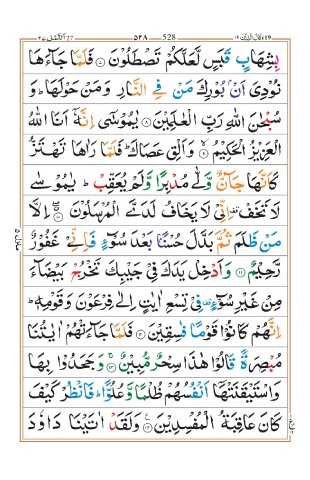 النمل ٢٧ ۵۲۸ 528 وقال الذين ١٩
بِشِهَابٍ قَبَسٍ لَّعَلَّكُمْ تَصْطَلُوْنَ ۷ فَلَمَّا جَآءَهَا
نُوْدِیَ اَنْۢ بُوْرِكَ مَنْ فِی النَّارِ وَمَنْ حَوْلَهَا ؕ وَ
سُبْحٰنَ اللّٰهِ رَبِّ الْعٰلَمِیْنَ ۸ یٰمُوْسٰۤی اِنَّهٗۤ اَنَا اللّٰهُ
الْعَزِیْزُ الْحَكِیْمُ ۹ وَاَلْقِ عَصَاكَ ؕ فَلَمَّا رَاٰهَا تَهْتَزُّ
كَاَنَّهَا جَآنٌّ وَّلّٰی مُدْبِرًا وَّلَمْ یُعَقِّبْ ؕ یٰمُوْسٰی
لَا تَخَفْ قف اِنِّیْ لَا یَخَافُ لَدَیَّ الْمُرْسَلُوْنَ ۱۰ اِلَّا
مَنْ ظَلَمَ ثُمَّ بَدَّلَ حُسْنًۢا بَعْدَ سُوْٓءٍ فَاِنِّیْ غَفُوْرٌ
رَّحِیْمٌ ۱۱ وَاَدْخِلْ یَدَكَ فِیْ جَیْبِكَ تَخْرُجْ بَیْضَآءَ
مِنْ غَیْرِ سُوْٓءٍ قف فِیْ تِسْعِ اٰیٰتٍ اِلٰی فِرْعَوْنَ وَقَوْمِهٖ ؕ
اِنَّهُمْ كَانُوْا قَوْمًا فٰسِقِیْنَ ۱۲ فَلَمَّا جَآءَتْهُمْ اٰیٰتُنَا
مُبْصِرَةً قَالُوْا هٰذَا سِحْرٌ مُّبِیْنٌ ۱۳ وَجَحَدُوْا بِهَا
وَاسْتَیْقَنَتْهَاۤ اَنْفُسُهُمْ ظُلْمًا وَّعُلُوًّا ؕ فَانْظُرْ كَیْفَ
كَانَ عَاقِبَةُ الْمُفْسِدِیْنَ ۱۴ وَلَقَدْ اٰتَیْنَا دَاوٗدَ